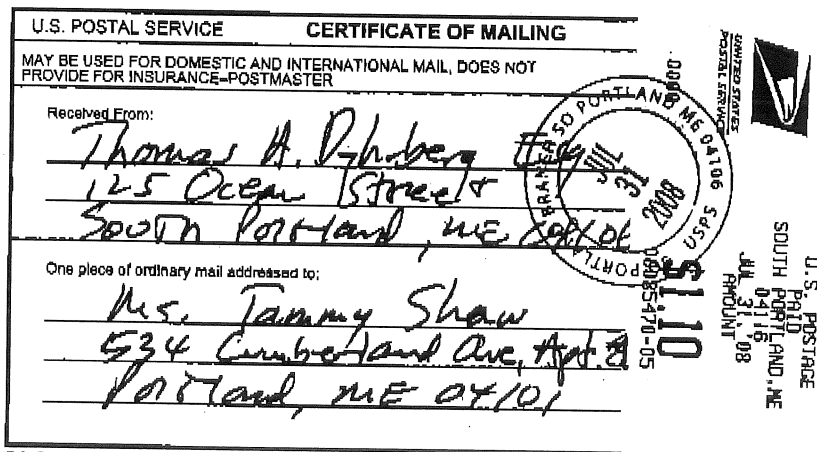 U.S. POSTAL SERVICE CERTIFICATE OF MAILING
MAY BE USED FOR DOMESTIC AND INTERNATIONAL MAIL, DOES NOT
PROVIDE FOR INSURANCE–POSTMASTER
Received From:
Thomas A. Dyhrberg Esq
125 Ocean Street
South Portland, ME
One piece of ordinary mail addressed to:
Ms. Tammy Shaw
534 Cumberland Ave, Apt.
Portland, ME 04101
SO PORTLAND ME 04106
JUL
31
2008
USPS
PORTLAND
UNITED STATES
POSTAL SERVICE
.0000
$1.10
08085470-05
U.S. POSTAGE
PAID
SOUTH PORTLAND, ME
04116
JUL 31, '08
AMOUNT